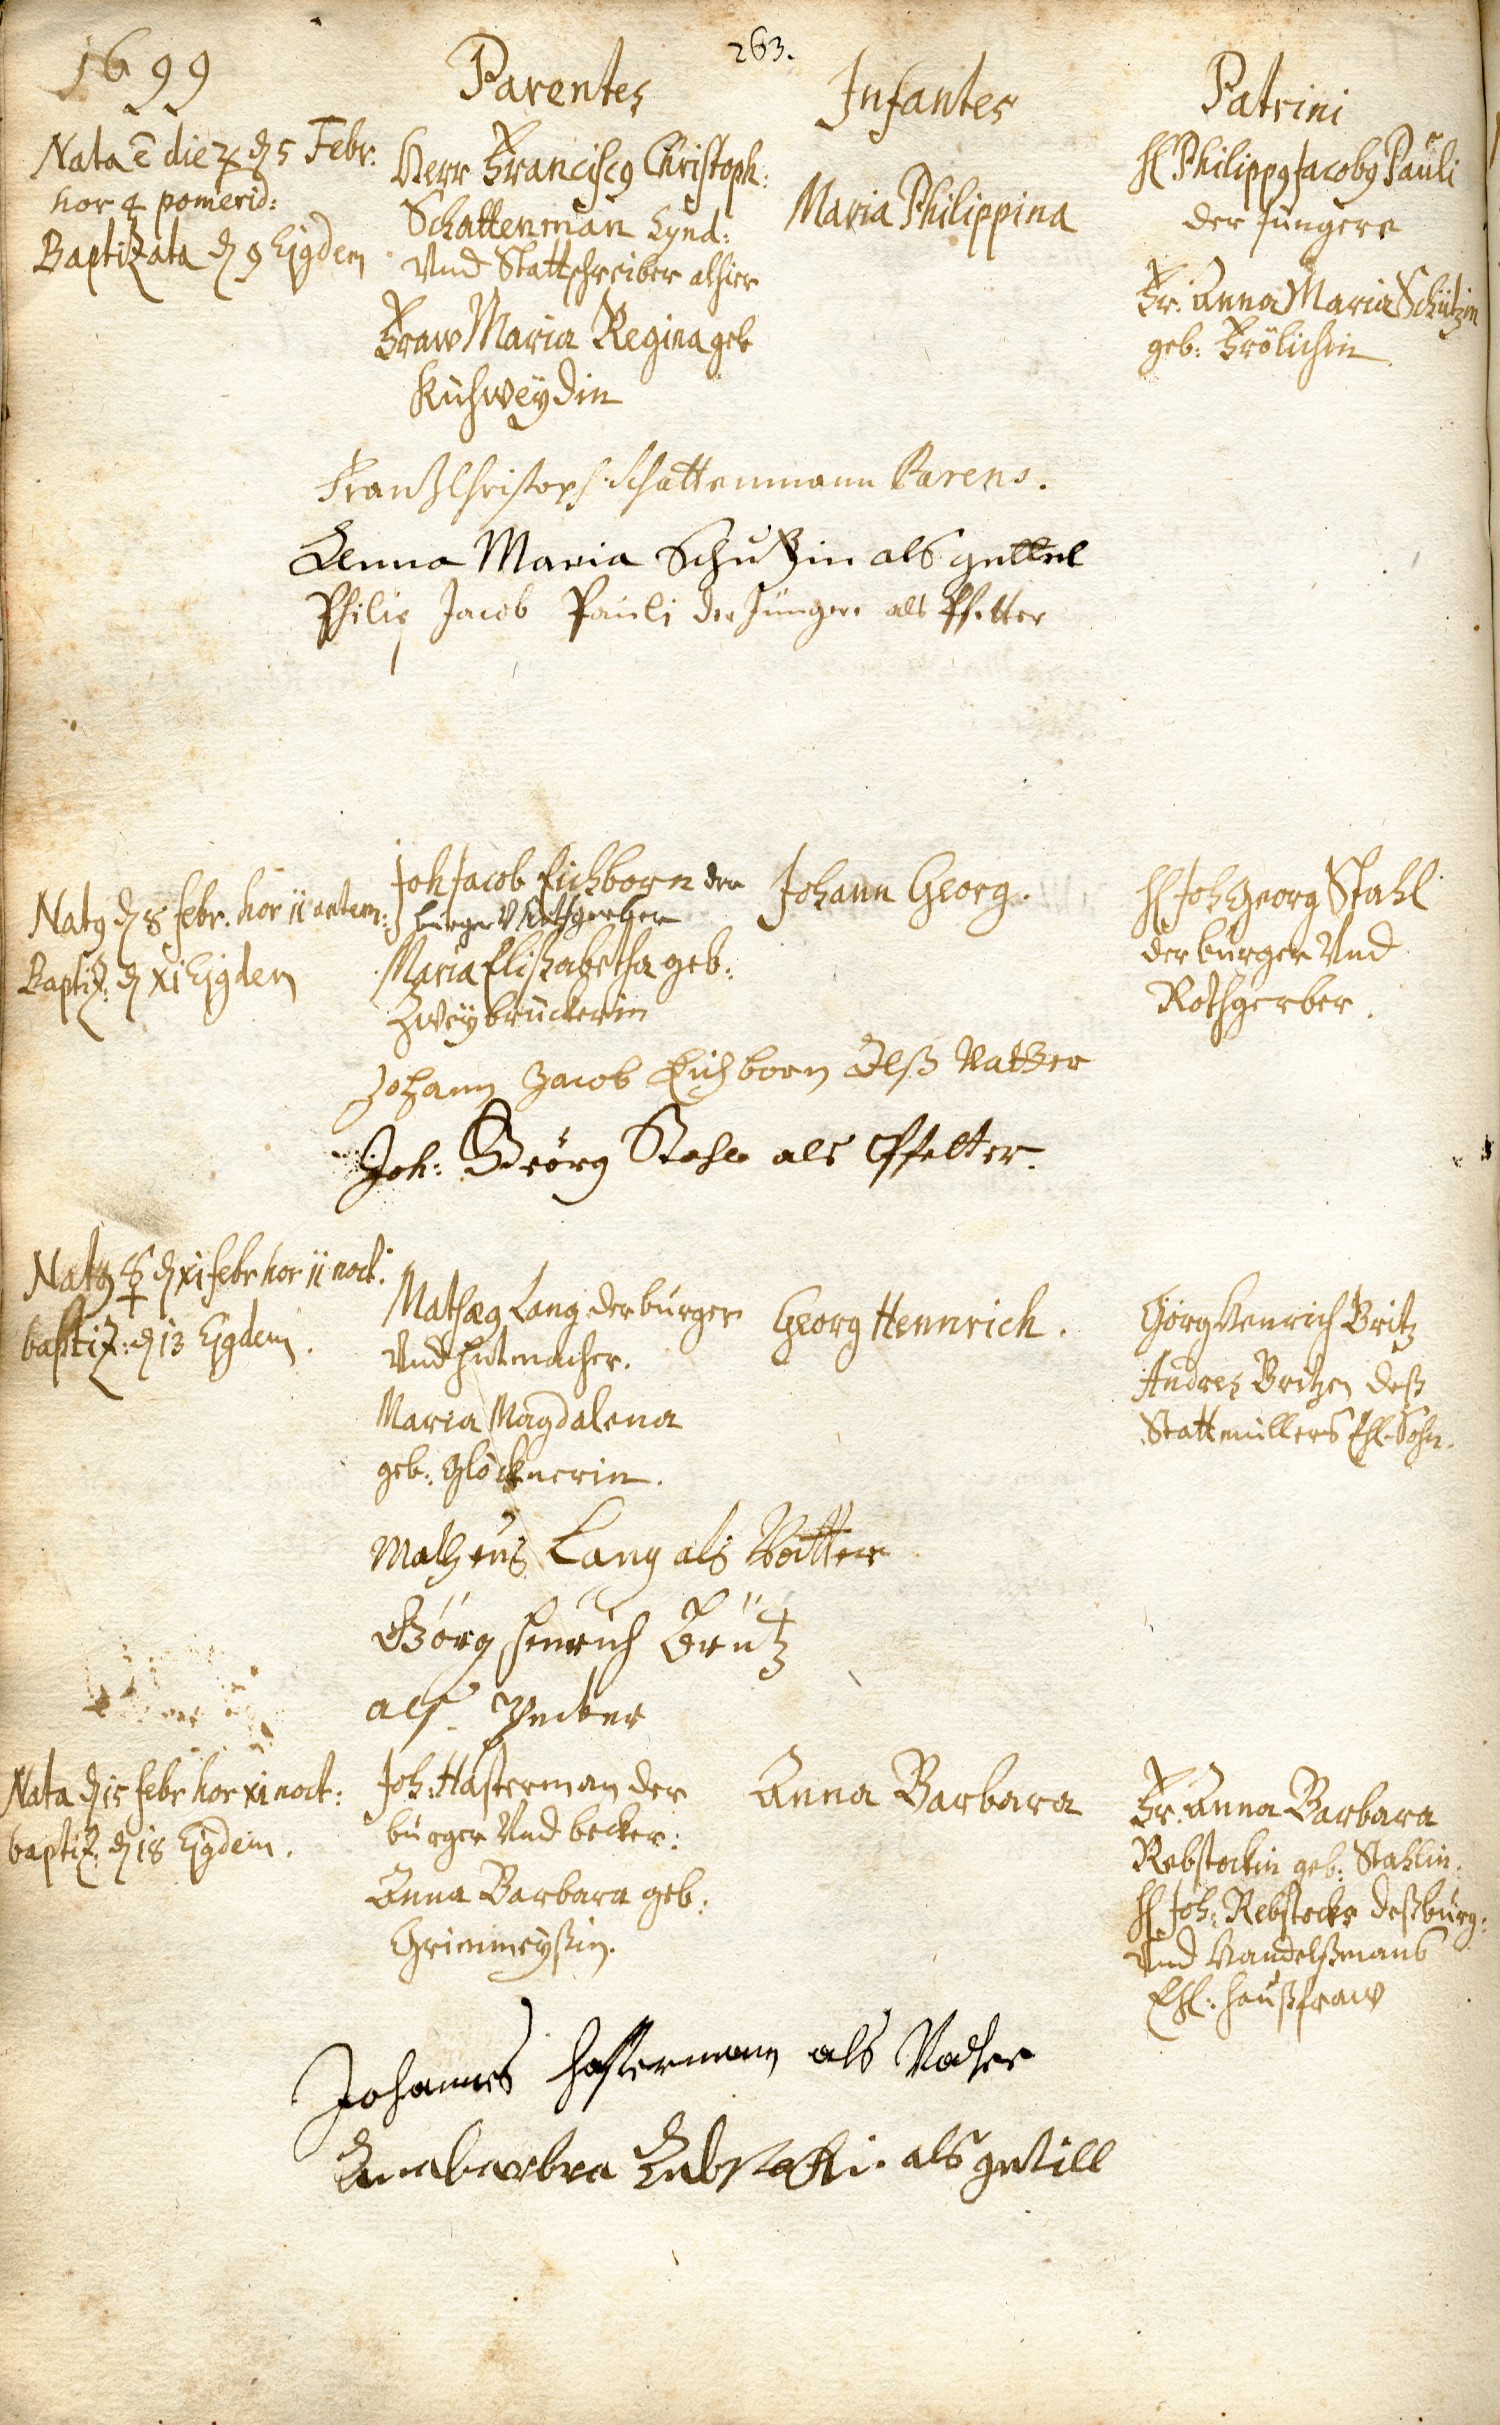 263.
1699
Parentes
Infantes
Patrini
Nata ē die ♃ d 5 Febr:
hor 4 pomerid:
Baptizata d 9 Ejgdem
Herr Franciscg Christoph:
Schattenman Synd:
Vnd Stattschreiber alhier
Fraw Maria Regina geb
Kühweÿdin
Maria Philippina
H Philippg Jacobg Pauli
der Jüngere
Fr: Anna Maria Schützin
geb: Frölichin
Frantz Christoph: Schattenmann Parens.
Anna Maria Schützin als gettel
Philip Jacob Pauli der Jüngere als Pfetter
Natg d 8 febr. hor 11 antem:
Baptiz: d xi Ejgdem
Joh Jacob Eichborn der
burger V Rothgerber
Maria Elisabetha geb:
Zweÿbrückerin
Johann Georg.
H Joh Georg Stahl
der burger Vnd
Rothgerber.
Johann Jacob Eichborn Alß Vatter
Joh: Geörg Stahl als Pfetter.
Natg d xi febr hor 11 noct:
baptiz: d 13 Ejgdem.
Mathæg Lang der burger
Vnd Hutmacher.
Maria Magdalena
geb: Glöcknerin.
Georg Hennrich.
Görg Henrich Britz
Andres Britzen deß
Stattmüllers Ehl. Sohn.
Matheus Lang als Vatter
Görg Henrich Brütz
als Petter
Nata d 15 febr hor xi noct:
baptiz: d 18 Ejgdem.
Joh: Hasterman der
burger Vnd becker:
Anna Barbara geb:
Grimmeÿßin.
Anna Barbara
Fr: Anna Barbara
Rebstockin geb: Stahlin.
H Joh: Rebstocks deß burg:
Vnd Handelßmans
Ehl: Haußfraw
Johannes Hastermann als Vatter
Annabarbra als gettill